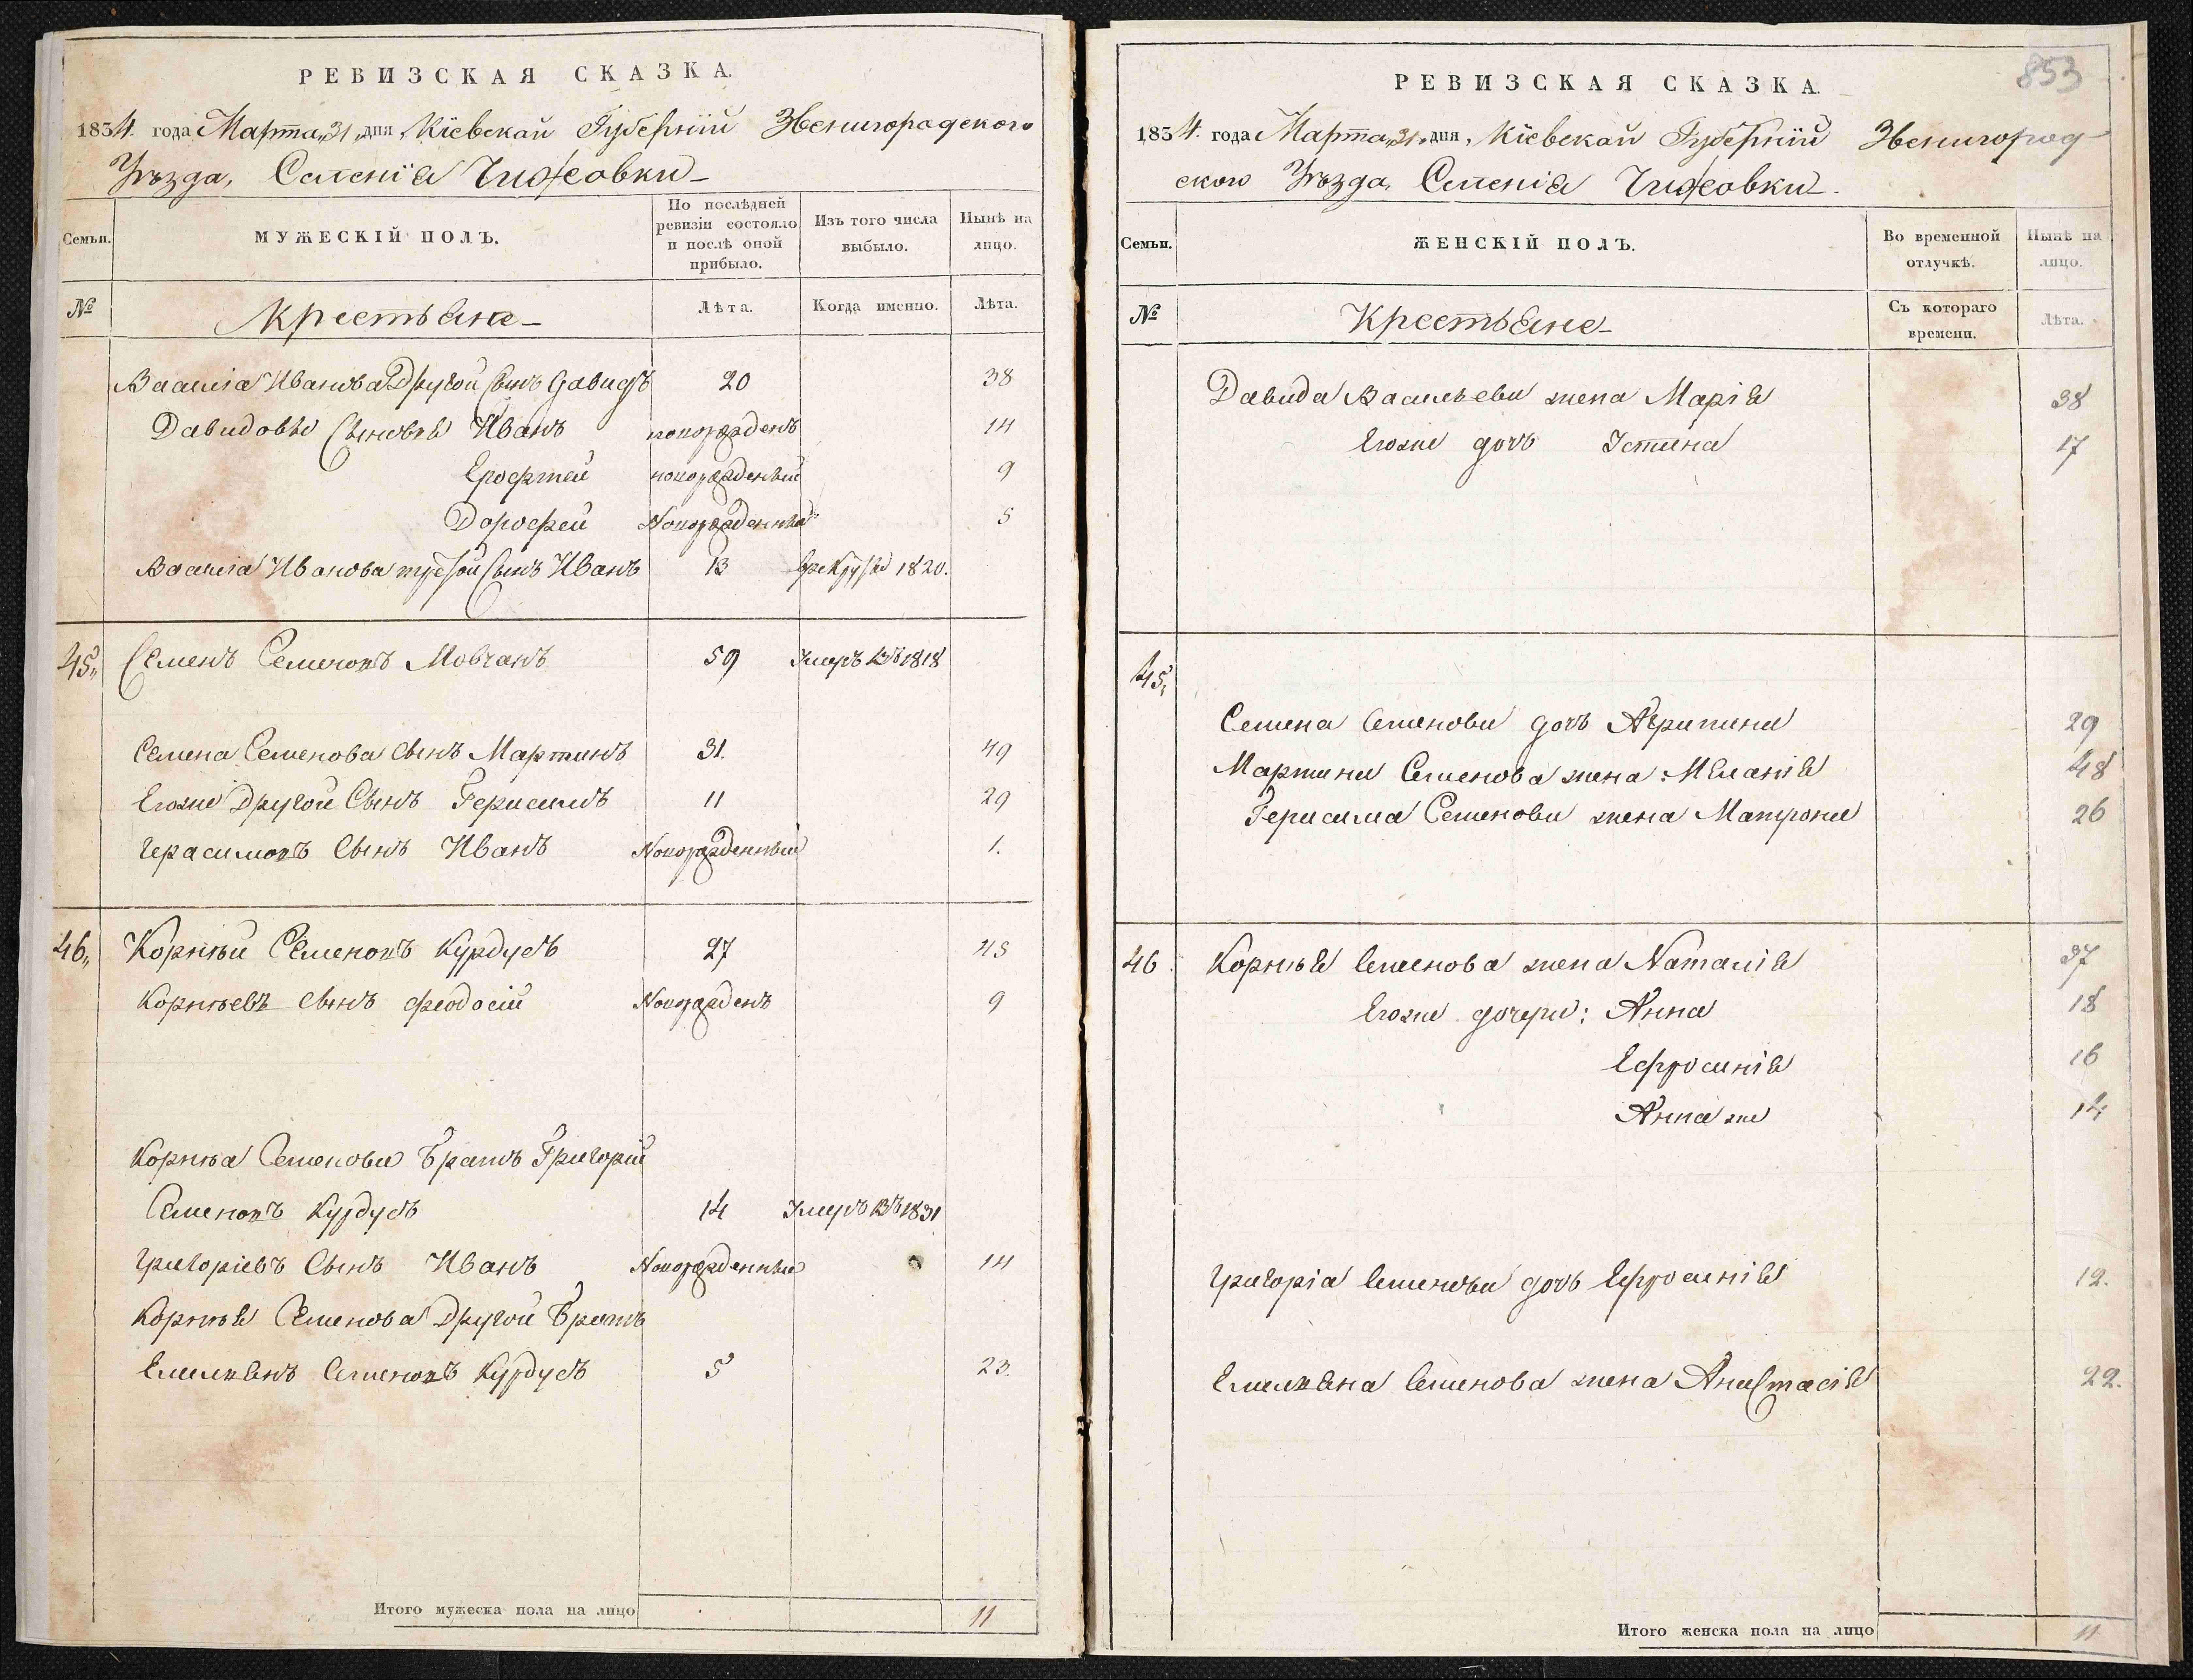 РЕВИЗСКАЯ СКАЗКА.
1834. года Марта „31„ дня, Кіевской Губерніи Звенигорадского
Уѣзда, Селенія Чижовки
Семьи.
МУЖЕСКІЙ ПОЛЪ.
По послѣдней ревизіи состояло и послѣ оной прибыло.
Изъ того числа выбыло.
Нынѣ на лицо.
№
Крестьяне
Лѣта.
Когда именно.
Лѣта.
Василія Иванова Другой Сынъ Давидъ 20 38
Давидовы Сыновья Иванъ новорожденъ 14
Ерофтей новорожденный 9
Дорофей Новорожденный 5
Василія Иванова третой Сынъ Иванъ 13 1820.
45„ Семенъ Семеновъ Мовчанъ 59 Умеръ въ 1818
Семена Семенова Сынъ Мартинъ 31. 49
Егоже Другой Сынъ Герисимъ 11 29
Герасимовъ Сынъ Иванъ Новорожденный 1.
46„ Корнѣй Семеновъ Курдусъ 27 45
Корнѣевъ Сынъ Феодосій Новорожденъ 9
Корнѣя Семенова Братъ Григорій
Семеновъ Курдусъ 14 Умеръ въ 1831
Григоріевъ Сынъ Иванъ Новорожденный 14
Корнѣя Семенова Другой Братъ
Емельянъ Семеновъ Курдусъ 5 23.
Итого мужеска пола на лицо 11
853
РЕВИЗСКАЯ СКАЗКА.
1834. года Марта „31„ дня, Кіевской Губерніи Звенигород-
ского Уѣзда, Селенія Чижовки.
Семьи.
ЖЕНСКІЙ ПОЛЪ.
Во временной отлучкѣ.
Нынѣ на лицо.
№
Крестьяне
Съ котораго времени.
Лѣта.
Давида Васильева жена Марія 38
Егоже дочь Устина 17
45„
Семена Семенова дочь Агрипина 29
Мартина Семенова жена: Меланія 48
Герисима Семенова жена Матрона 26
46 Корнѣя Семенова жена Наталія 37
Егоже дочери: Анна 18
Ефросинія 16
Анна же 14
Григорія Семенова дочь Ефросинія 12.
Емельяна Семенова жена Анастасія 22.
Итого женска пола на лицо 11